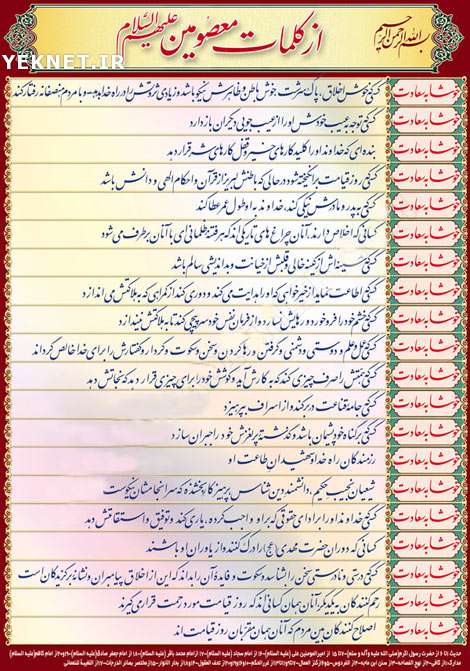 بسم الله الرحمن الرحیم
از کلمات معصومین علیهم السلام
YEKNET.IR
خوشا به سعادت کسی خوش اخلاق، پاک سرشت خوش باطن و ظاهرش نیکو باشد و زیادی ثروتش را در راه خدا بدهد و با مردم منصفانه رفتار کند
خوشا به سعادت کسی توجه به عیب خودش او را از عیب جویی دیگران باز دارد
خوشا به سعادت بنده ای که خداوند او را کلید کارهای خیر و قفل کارهای شر قرار دهد
خوشا به سعادت کسی روز قیامت برانگیخته شود در حالی که باطنش لبریز از قرآن و احکام الهی و دانش باشد
خوشا به سعادت کسی به پدر و مادرش نیکی کند، خداوند به او طول عمر عطا کند
خوشا به سعادت کسانی که اخلاص دارند، آنان چراغ های تاریکی اند که هر فتنه ظلمانی ای با آنان برطرف می شود
خوشا به سعادت کسی سینه اش از کینه خالی و قلبش از خیانت و بداندیشی سالم باشد
خوشا به سعادت کسی اطاعت نماید از خیرخواهی که او را هدایت می کند و دوری کند از گمراهی که به هلاکتش می اندازد
خوشا به سعادت کسی خشم خود را فرو خورد و رهایش نسازد و از فرمان نفس خود سرپیچی کند تا به هلاکتش نیندازد
خوشا به سعادت کسی عمل و علم و دوستی و دشمنی و گرفتن و رها کردن و سخن و سکوت و کردار و گفتارش را برای خدا خالص گرداند
خوشا به سعادت کسی همتش را صرف چیزی کند که به کارش آید و کوشش خود را برای چیزی قرار دهد که نجاتش دهد
خوشا به سعادت کسی جامه قناعت در بر کند و از اسراف بپرهیزد
خوشا به سعادت کسی بر گناه خود پشیمان باشد و گذشته پر لغزش خود را جبران سازد
خوشا به سعادت رزمندگان راه خدا و شهیدان طاعت او
خوشا به سعادت شیعیان نجیب حکیم، دانشمند دین شناس پرهیزکار بخشنده که سرانجامشان نیکوست
خوشا به سعادت کسی خداوند او را بر ادای حقوقی که بر او واجب کرده، یاری کند و توفیق و استقامتش دهد
خوشا به سعادت کسانی که دوران حضرت مهدی (عج) را درک کنند و از یاوران او باشند
خوشا به سعادت کسی درستی و نادرستی سخن را بشناسد و سکوت و فایده آن را بداند که این از اخلاق پیامبران و نشانه برگزیدگان است
خوشا به سعادت رحم کنندگان به یکدیگر، آنان همان کسانی اند که روز قیامت مورد رحمت قرار می گیرند
خوشا به سعادت اصلاح کنندگان بین مردم که آنان همان مقربان روز قیامت اند